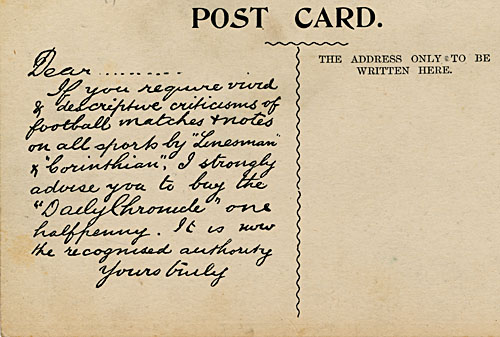 POST CARD.
THE ADDRESS ONLY TO BE
WRITTEN HERE.
Dear ..........
If you require vivid
& descriptive criticisms of
football matches & notes
on all sports by "Linesman"
& "Corinthian", I strongly
advise you to buy the
"Daily Chronicle" one
halfpenny. It is now
the recognised authority
Yours truly